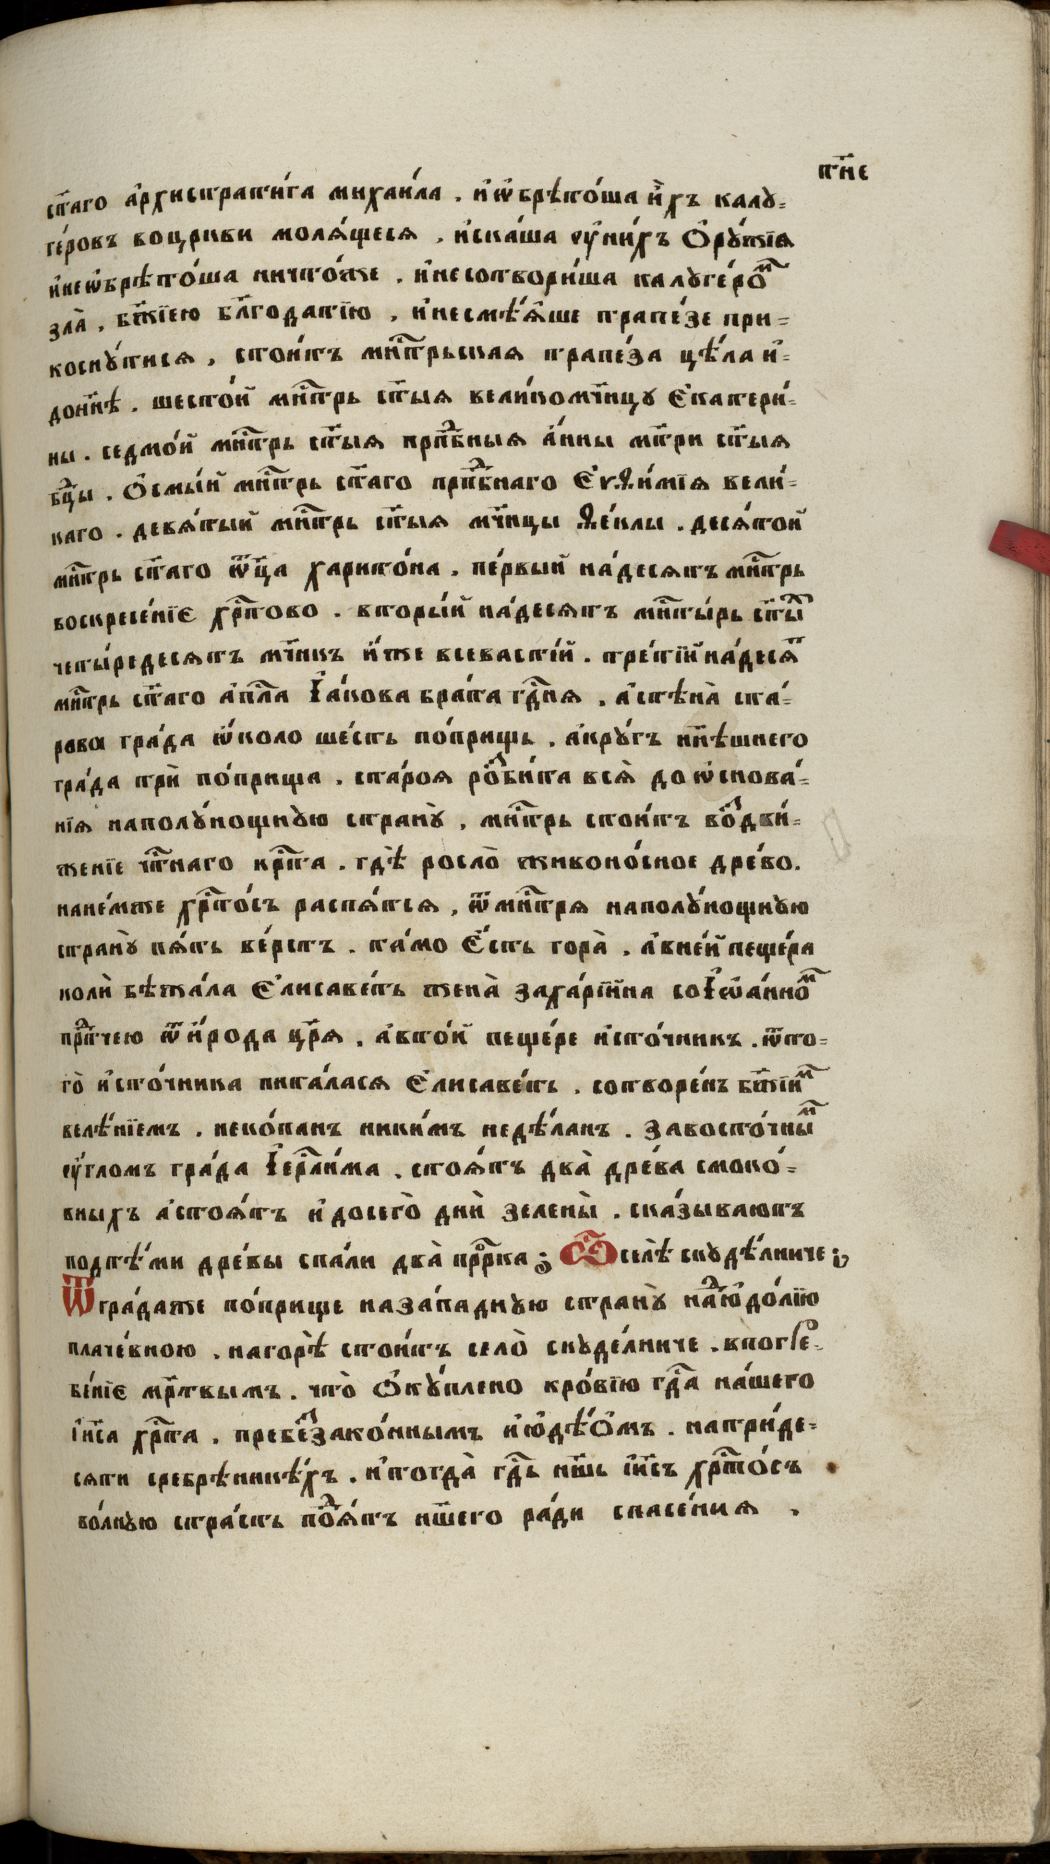 пн҃е
ст҃а́го а҆рхистрати́га михаи́ла . и҆ѡ҆брѣто́ша и҆̀хъ калꙋ=
ге́ровъ воцр҃кви молѧ́щесѧ . и҆ска́ша ᲂу҆ни́хъ Ѻ҆рꙋ́жїѧ
и҆неѡ҆брѣто́ша ничто́же . и҆несотвори́ша калꙋге́роⷨ
зла̀ . бж҃їею бл҃года́тїю . и҆несмѣ́ѧше трапе́зе при=
коснꙋ́тисѧ . стои́тъ мн҃трьскаѧ трапе́за цѣ́ла и҆=
дон҃нѣ . шесто́й мн҃трь ст҃ы́ѧ великомч҃ницꙋ Є҆катери́=
ны . седмо́й мн҃трь ст҃ы́ѧ прпⷣбныѧ а́нны мт҃ри ст҃ы́ѧ
бцⷣы . Ѻ҆смы́й мн҃трь ст҃а́го прпⷣбнаго Є҆ѵѳи́мїѧ вели́=
каго . девѧ́тый мн҃трь ст҃ы́ѧ мч҃ницы Ѳе́клы . десѧ́той
мн҃трь ст҃а́го ѻ҆ц҃а̀ харито́на . пе́рвый на́десѧтъ мн҃трь
воскресе́нїє хрⷭ҇то́во . вторы́й на́десѧтъ мн҃ты́рь ст҃ы́ⷯ
четы́редесѧтъ мч҃никъ и҆́же всевасті́й . тре́тїй на́десѧⷮ
мн҃трь ст҃а́го а҆пⷭ҇ла І҆а́кова бра́та гдⷭ҇нѧ . а҆стѣна̀ ста́=
рова гра́да ѡ҆́коло ше́сть по́прищъ . а҆крꙋ́гъ нн҃ѣшнего
гра́да трѝ по́прища . ста́роѧ роⷥби́та всѧ̀ до ѡ҆снова́=
нїѧ наполꙋ́нощнꙋю странꙋ̀ . мн҃трь стои́тъ воⷥдви́=
женїе чтⷭ҇наго крⷭ҇та . гдѣ̀ росло̀ живоно́сное дре́во .
нане́мже хрⷭ҇то́съ распѧ́тсѧ . ѿмн҃трѧ наполꙋ́нощнꙋю
странꙋ̀ пѧ́ть ве́рстъ . та́мо Є҆́сть гора̀ . а҆вне́й пеще́ра
колѝ бѣжа́ла Є҆лисаве́тъ жена̀ заха́рїйна соІ҆ѡа́нноⷨ
прⷣтчею ѿи҆́рода цр҃ѧ̀ . а҆вто́й пеще́ре и҆сто́чникъ . ѿто=
го̀ и҆сто́чника пита́ласѧ Є҆лисаве́ть . сотворе́нъ бж҃їиⷨ
велѣ́нїемъ . неко́панъ ники́мъ недѣ́ланъ . завосто́чныⷨ
ᲂу҆́гломъ гра́да І҆ерⷭ҇ли́ма . стоѧ́тъ два̀ дре́ва смоко́=
вныхъ а҆стоѧ́тъ и҆досего̀ днѝ зелены̀ . ска́зываютъ
подтѣ́ми дре́вы спа́ли два̀ прⷪ҇рка ; Ѽселѣ̀ скꙋдѣ́лниче ;
Ѿгра́даже по́прище наза́паднꙋю странꙋ̀ наⷣю҆до́лїю
плаче́вною . нагорѣ̀ стои́тъ село̀ скꙋде́лниче . впогре=
бе́нїє мр҃твымъ . что̀ Ѻ҆кꙋ́плено кро́вїю гдⷭ҇а на́шего
і҆и҃са хрⷭ҇та̀ . пребеⷥзако́ннымъ и҆ю҆дѣ́ѻмъ . натри́де=
сѧти сребрѣникѣ́хъ . и҆тогда̀ гдⷭ҇ь нш҃ь і҆и҃съ хрⷭ҇то́съ
во́лнꙋю стра́сть поⷣѧ́тъ нш҃его ра́ди спасе́ниѧ .